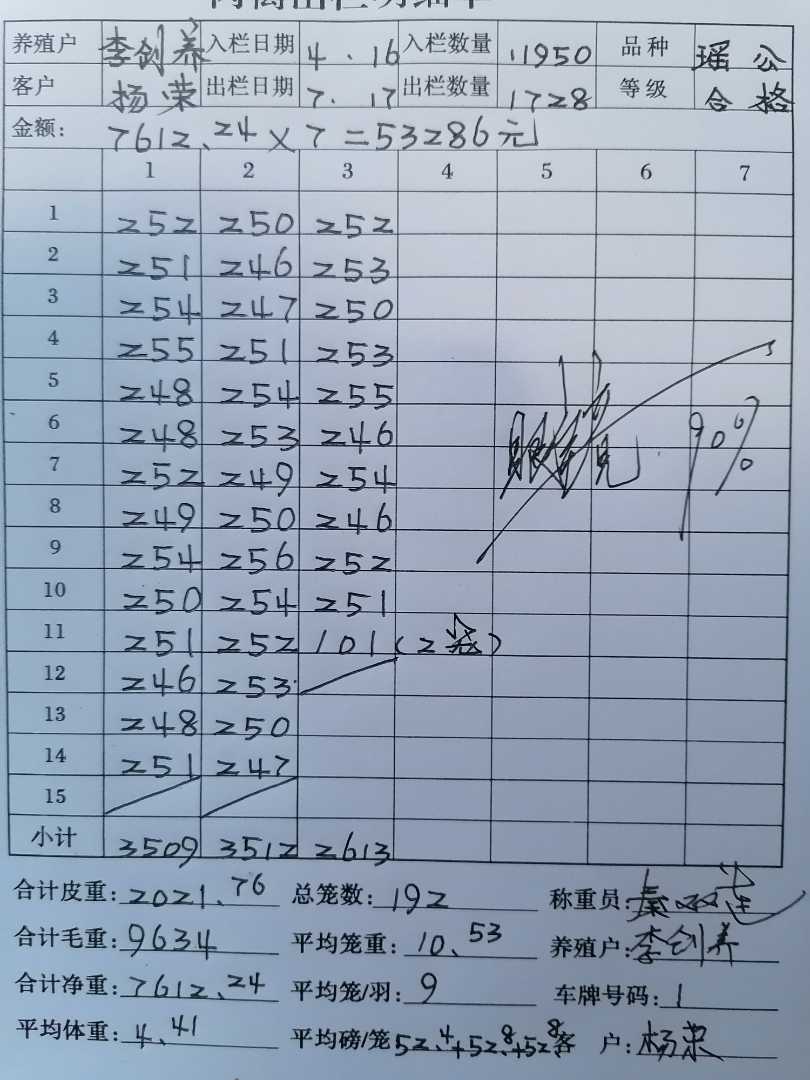 养殖户 李创养 入栏日期 4.16 入栏数量 11950 品种 瑶公
客户 杨荣 出栏日期 7.17 出栏数量 1728 等级 合格
金额: 7612.24×7=53286元
1 2 3 4 5 6 7
1 252 250 252
2 251 246 253
3 254 247 250
4 255 251 253
5 248 254 255
6 248 253 246 90%
7 252 249 254
8 249 250 246
9 254 256 252
10 250 254 251
11 251 252 101(2笼)
12 246 253
13 248 250
14 251 247
15
小计 3509 3512 2613
合计皮重: 2021.76 总笼数: 192 称重员:
合计毛重: 9634 平均笼重: 10.53 养殖户: 李创养
合计净重: 7612.24 平均笼/羽: 9 车牌号码: 1
平均体重: 4.41 平均磅/笼 52.4+52.8+52.8 客 户: 杨荣